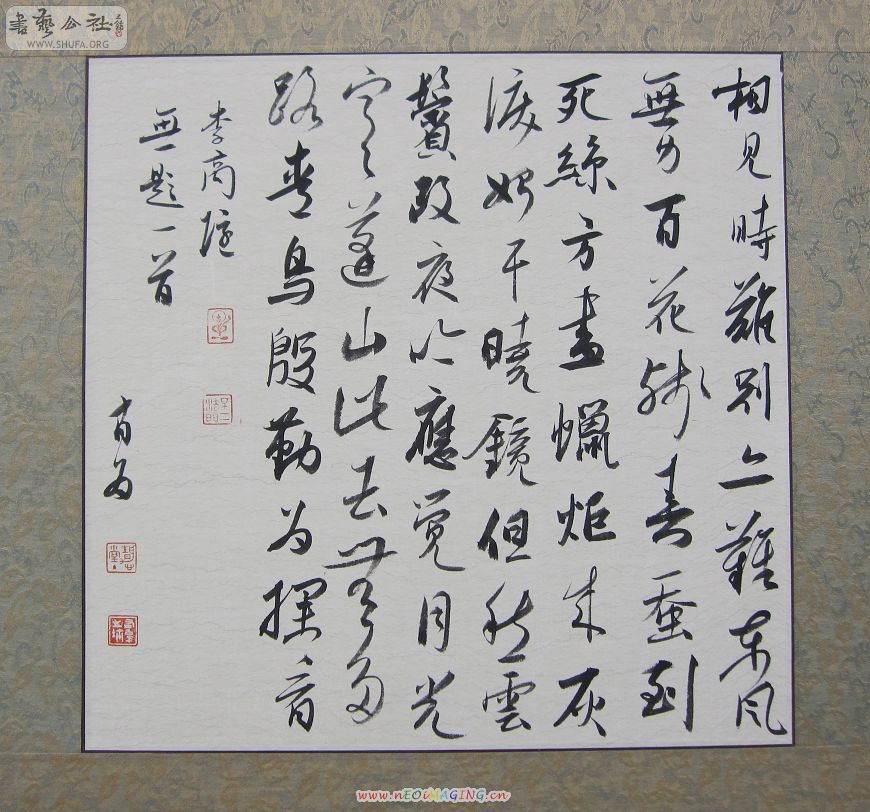 書藝公社
WWW.SHUFA.ORG
相見時難別亦難東風
無力百花殘春蚕到
死絲方盡蠟炬成灰
淚始干曉鏡但愁雲
鬢改夜吟應覺月光
寒蓬山此去無多
路青鳥殷勤为探看
李商隱
無題一首
www.nEOiMAGiNG.cn